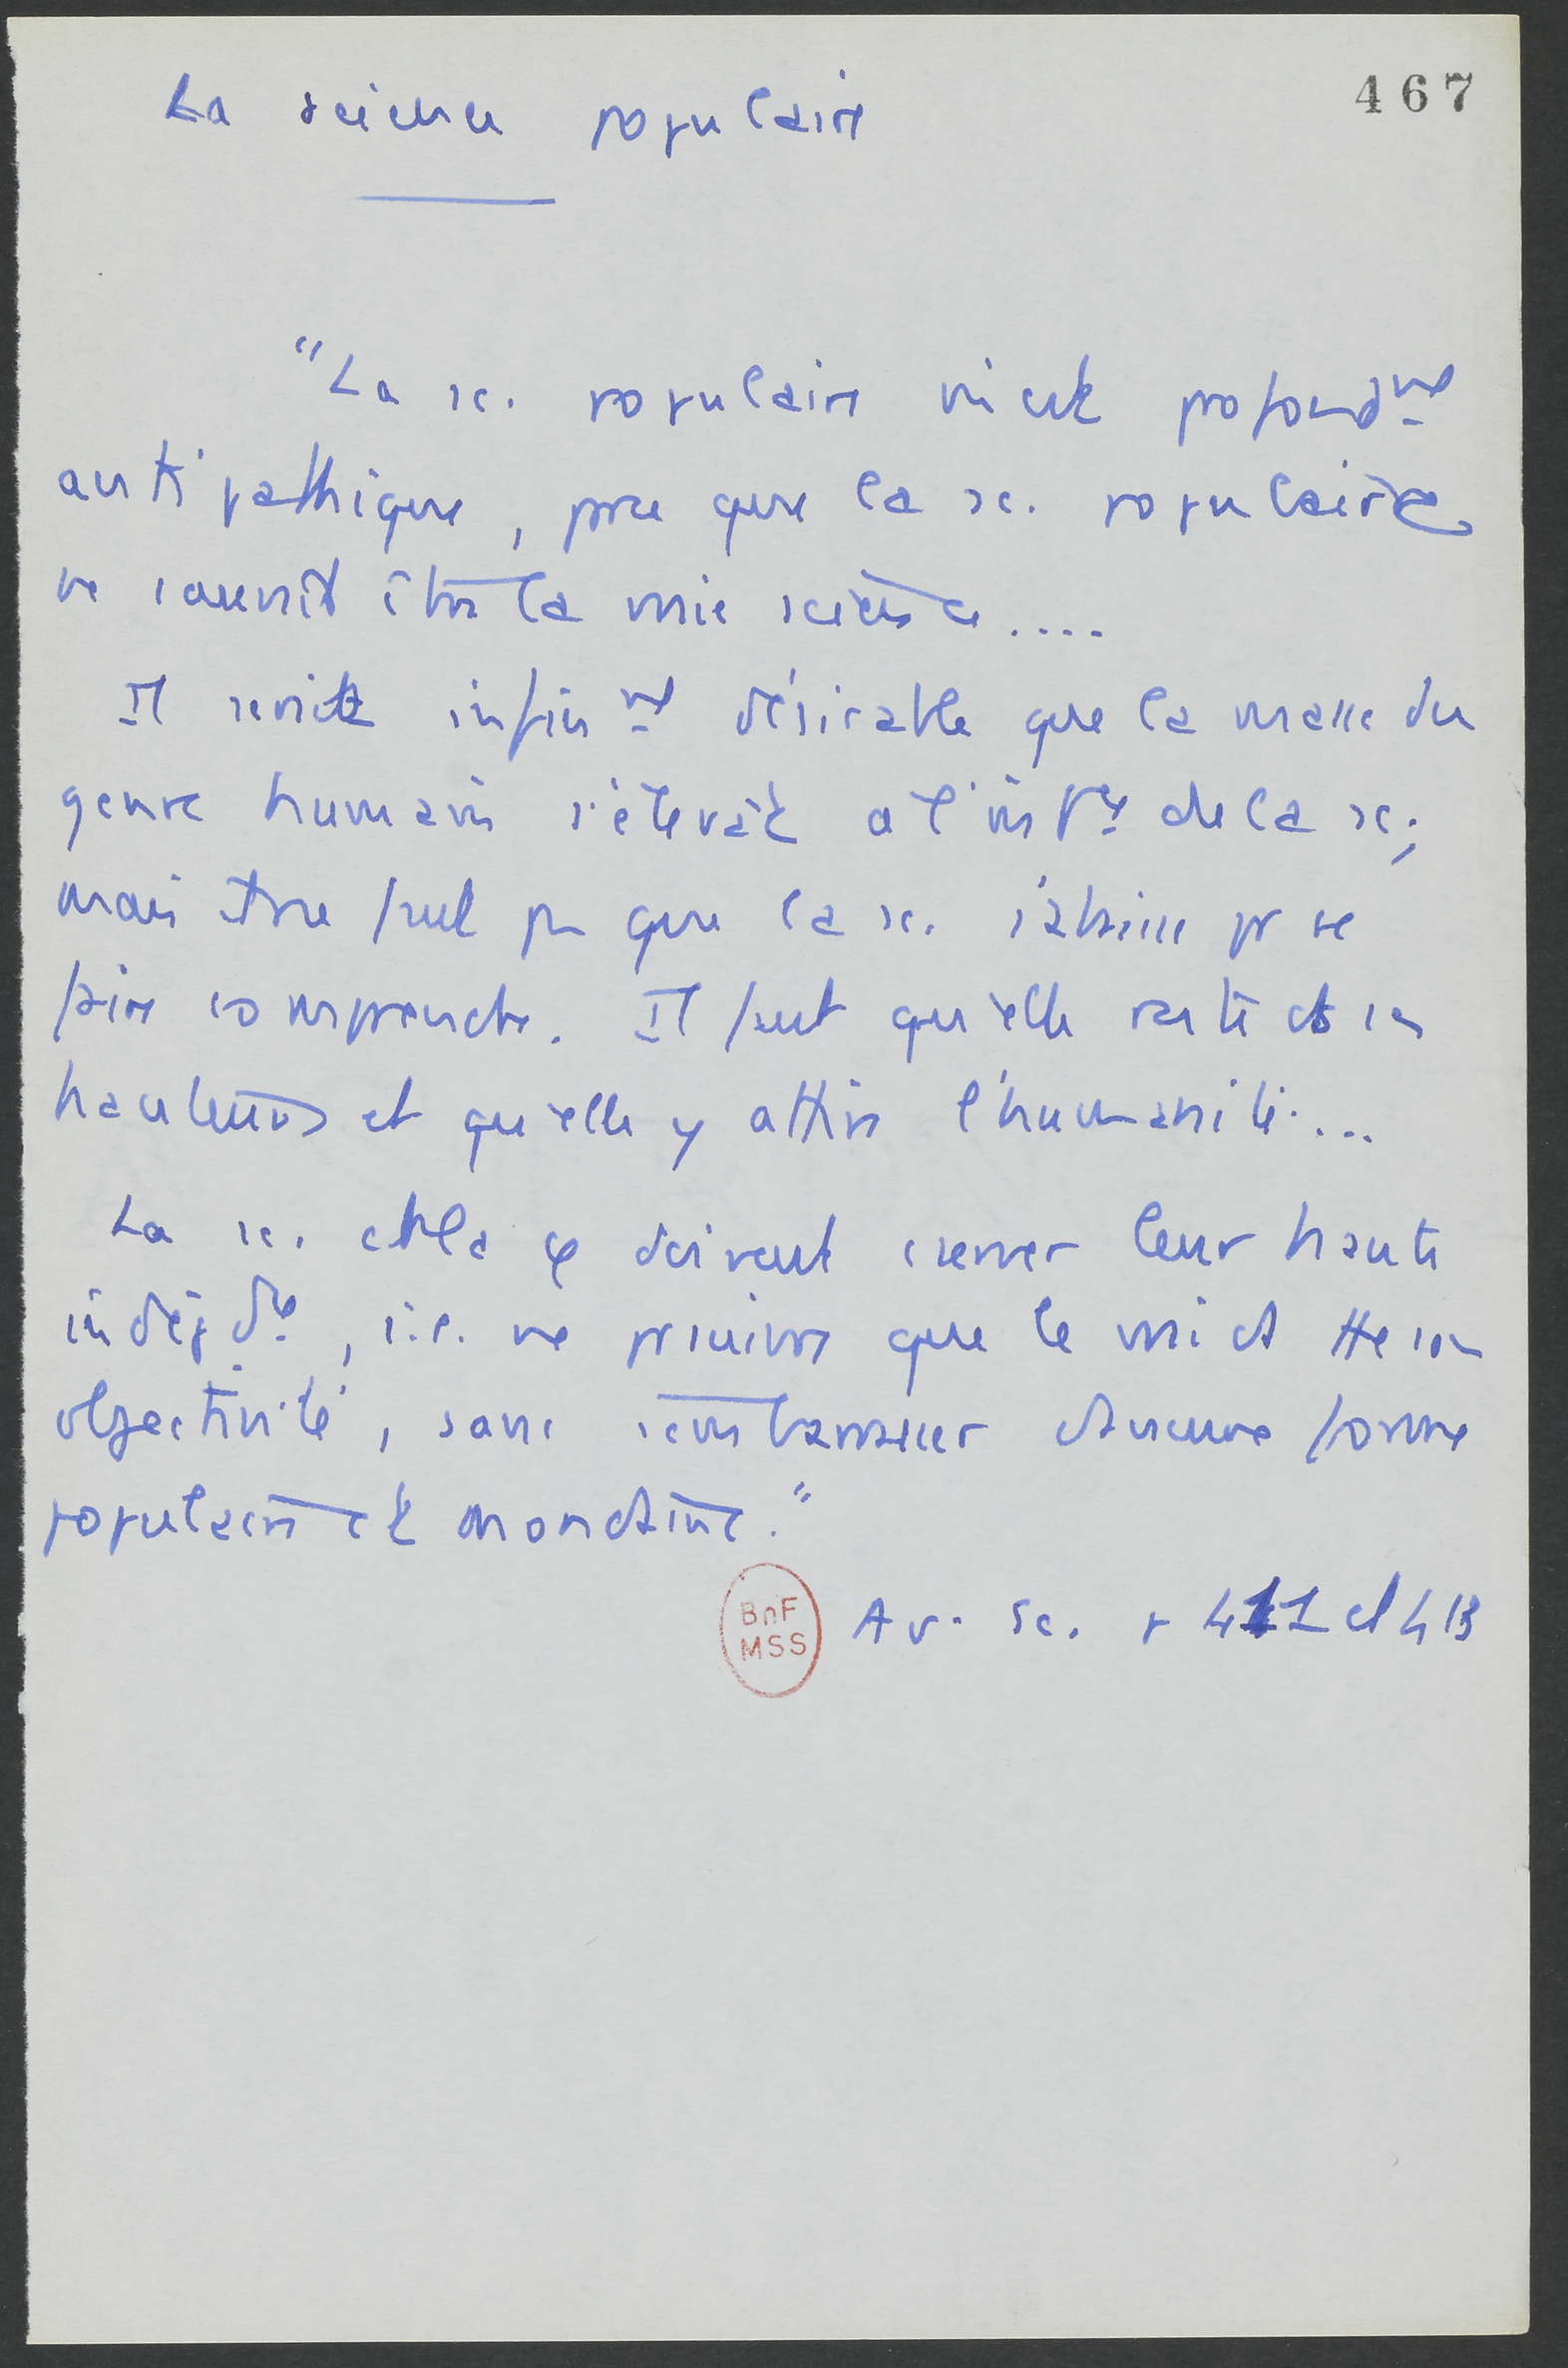 467
La science populaire
"La sc. populaire m'est profondmt
antipathique, pce que la sc. populaire
ne saurait être la vraie science....
Il serait infinmt désirable que la masse du
genre humain s'élevât à l'intce de la sc;
mais il ne faut pas que la sc. s'abaisse pr se
faire comprendre. Il faut qu'elle reste ds ses
hauteurs et qu'elle y attire l'humanité...
La sc. et la φ doivent conserver leur haute
indépdce, i.e. ne poursuivre que le vrai ds tte son
objectivité, sans s'embarrasser d'aucune forme
populaire et mondaine."
BnF
MSS
Av. Sc. p 411 et 413